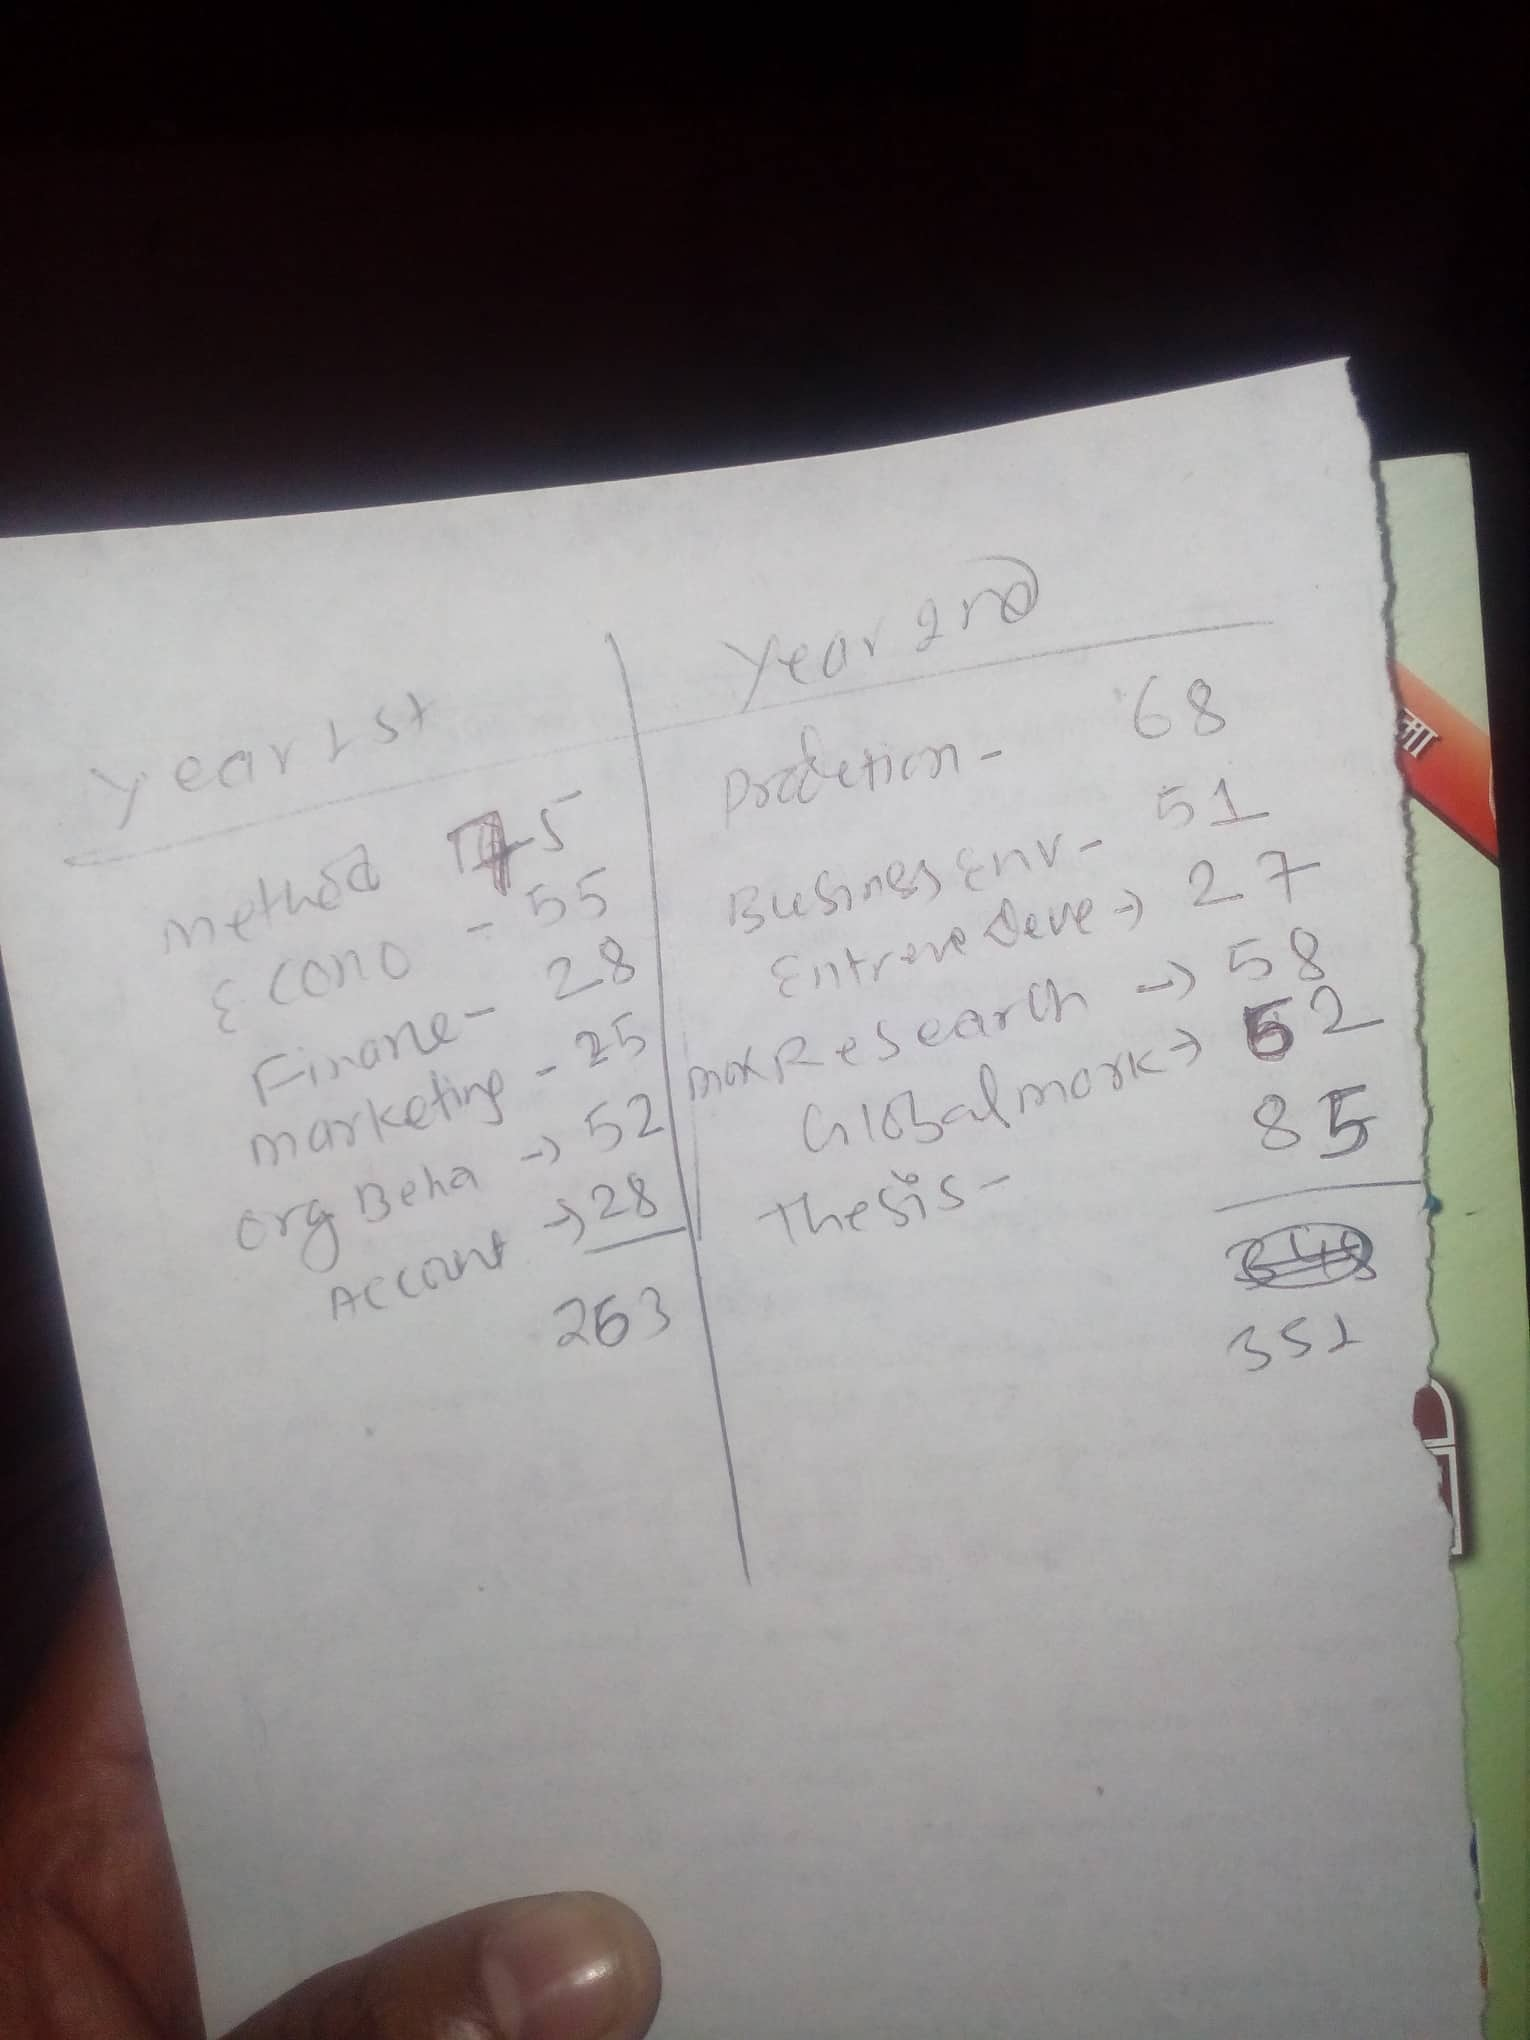 Year 1st
Method 75
Econo - 55
Finane - 28
marketing - 25
org Beha → 52
Account → 28
263
Year 2nd
Prodction - 68
Business Env - 51
Entrene Deve → 27
mar Research → 58
Global mark → 62
thesis - 85
348
351
मा